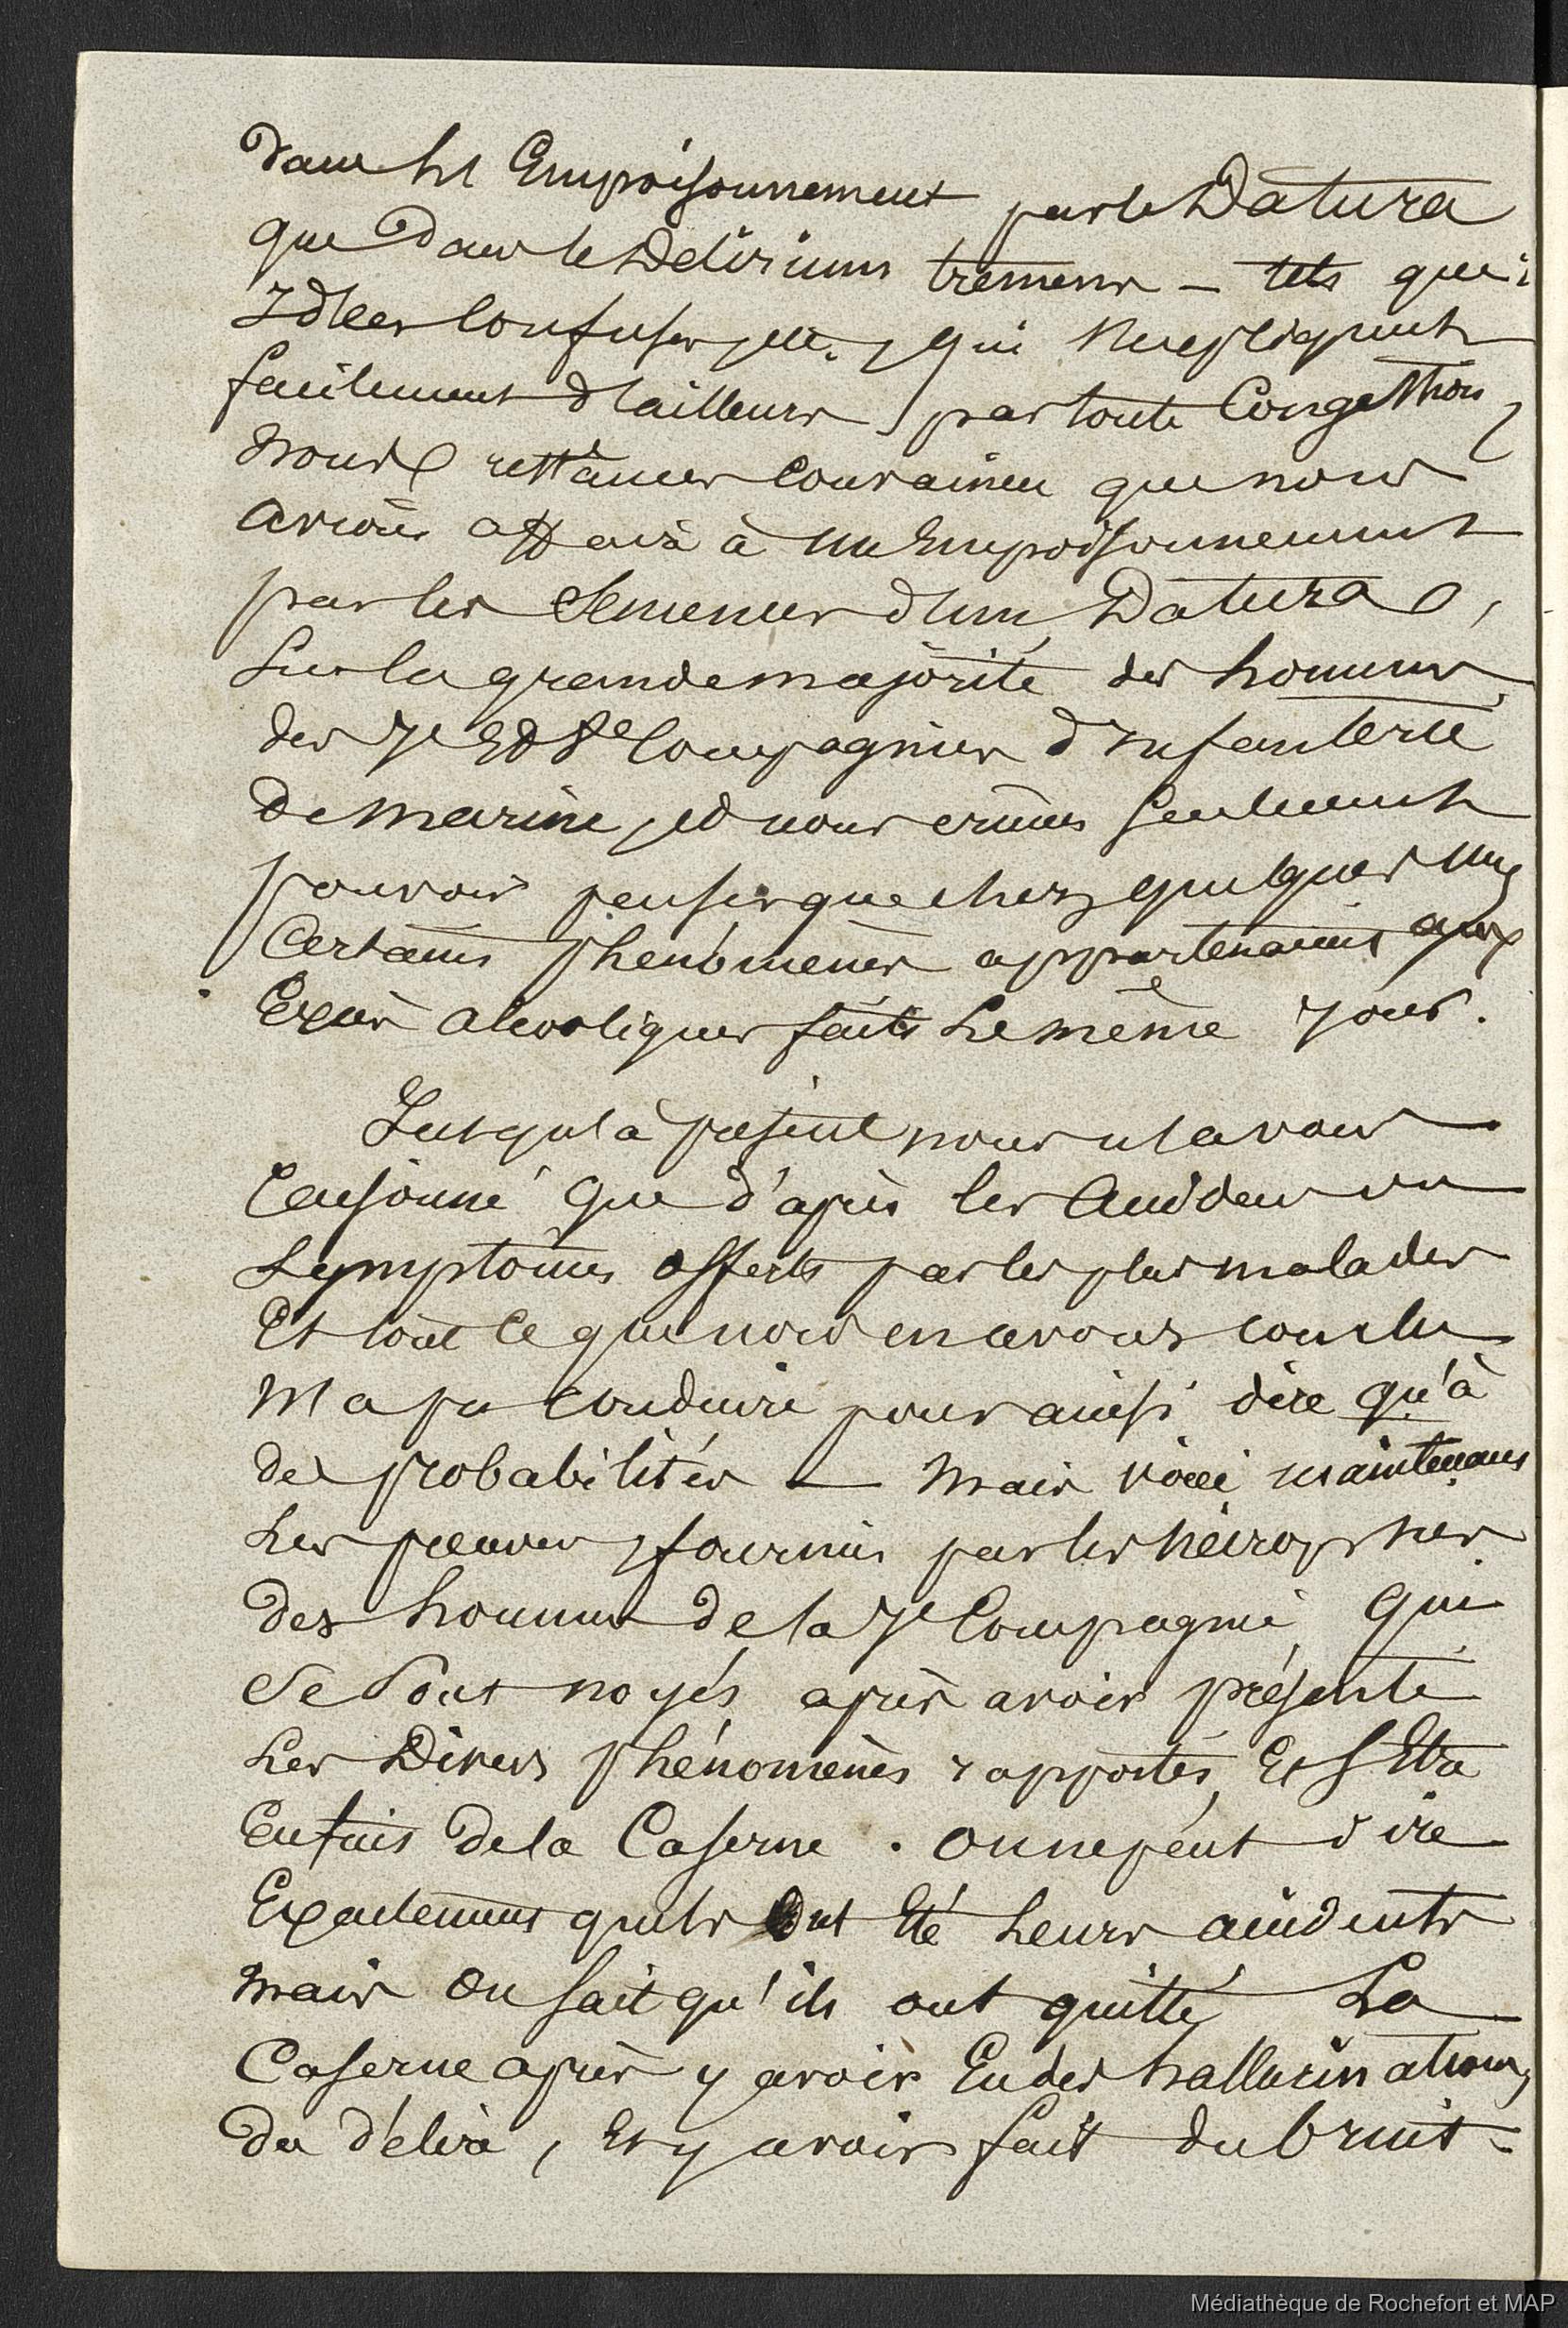 dans les Empoisonnement par le Datura
que dans le Delirium tremens – tels que :
Idées confuses, etc., qui s'expliquent
facilement d'ailleurs par toute Congestion,
nous restâmes convaincu que nous
avions affaire à un Empoisonnement
par les Semences d'un Datura,
Sur la grande majorité des hommes
des 7e Et 8e Compagnies d'Infanterie
de Marine, et nous crûmes seulement
pouvoir penser que chez quelques uns
Certains phénomènes appartenaient aux
Excès alcooliques faits Le même jour.
Jusqu'à présent nous n'avons
raisonné que d'après les Accidens ou
Symptômes offerts par les plus malades
Et tout ce que nous en avons conclu
n'a pu conduire pour ainsi dire qu'à
des probabilités — Mais voici maintenant
Les preuves, fournies par les nécropsies
des hommes de la 7e Compagnie, qui
Se Sont noyés après avoir présenté
Les Divers phénomènes rapportés, Et S'être
Enfuis de la Caserne . On ne peut dire
Exactement quels Ont Eté Leurs accidents
mais On sait qu'ils ont quitté La
Caserne après y avoir Eu des hallucinations,
du délire, Et y avoir fait du bruit -
Médiathèque de Rochefort et MAP